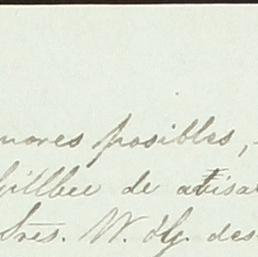 nores posibles,
Gillbee de atisa
Sres. W. y G. des